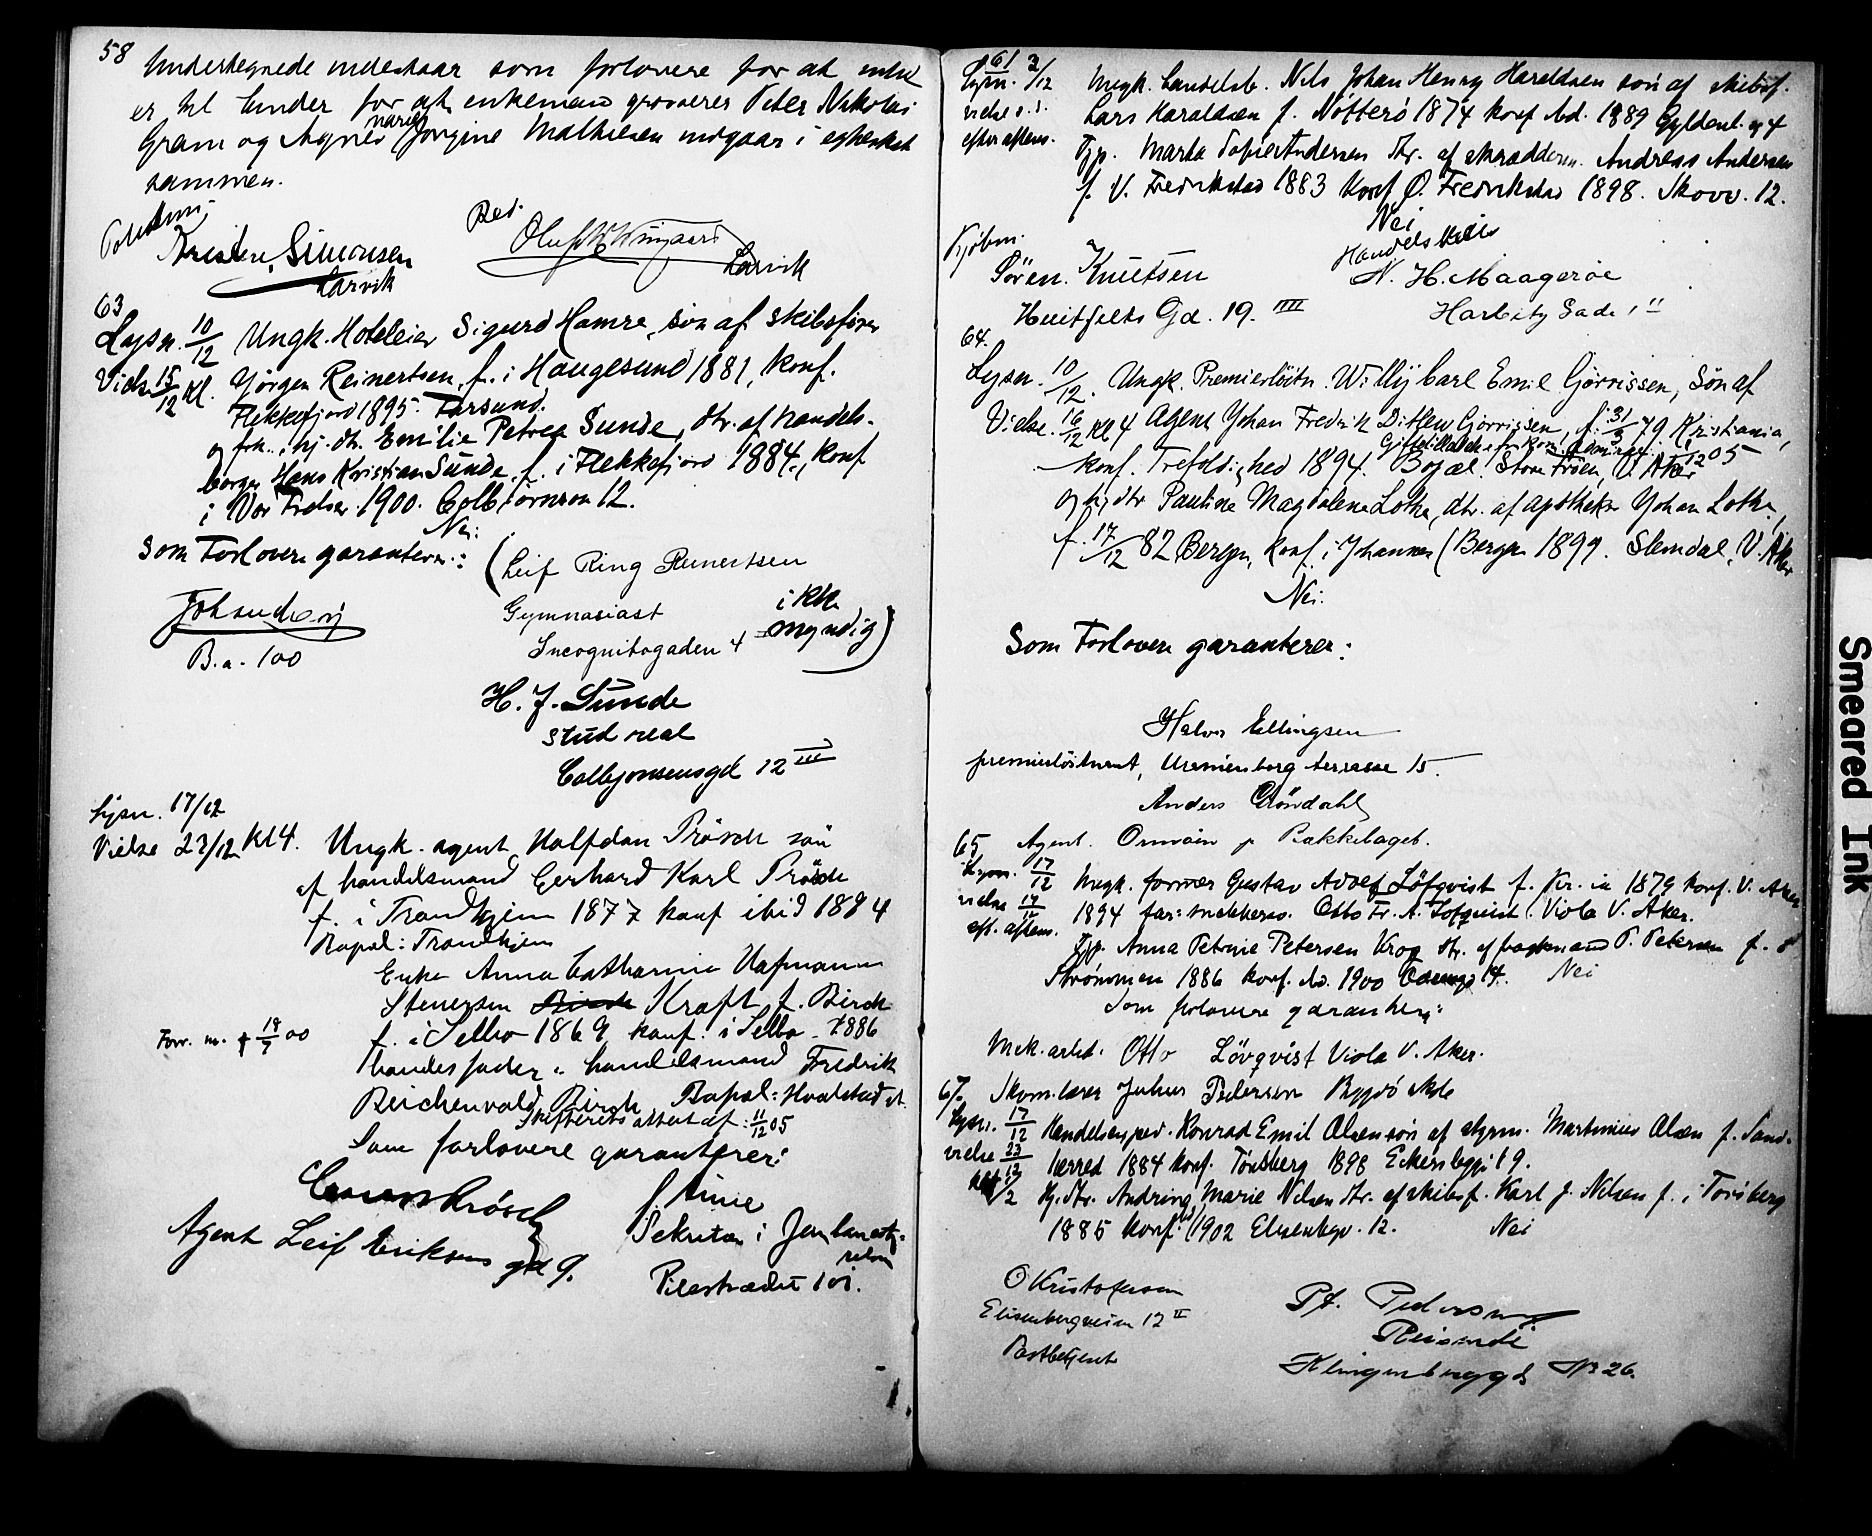 58
Undertegnede indestaar som forlovere for at intet
er til hinder for at enkemand grosserer Peter Nikolai
Gram og Agnes Marie Jorgine Mathiesen indgaar i egteskab
sammen.
Kristen Simonsen
Larvik
Larvik
63
Lysn. 10/12 Ungk. Hoteleier Sigurd Hamre, søn af skibsfører
Viels 15/12 Kl. Jørgen Reinertsen, f. i Haugesund 1881, konf.
Flekkefjord 1895. Farsund.
og frk., hj. dtr. Emilie Petrea Sunde, dtr. af handels-
borger Hans Kristian Sunde, f. i Flekkefjord 1884, konf
i Vor Frelser 1900. Colbjørnsen 12.
Nei.
Som Forlovere garanterer:
(Leif Ring Reinertsen
Gymnasiast
Incognitogaden 4
ikke
myndig)
B.a. 100
H. J. Sunde
stud real
Colbjørnsensgd 12 III
Lysn. 17/12
Vielse 23/12 Kl 4. Ungk. agent Halfdan Prösch søn
af handelsmand Gerhard Karl Prösch
f. i Trondhjem 1877 konf ibid 1894
Bopæl: Trondhjem
Enke Anna Catharina Hafmann
Stenersen Kraft f. Birch
Forr. m. † 18/7 00
f. i Selbo 1869 konf. i Selbo 1886
hendes fader: handelsmand Fredrik
Reichenvald Birch Bopæl: Hvalstad st.
Skifterets attest af: 11/12 05
Som forlovere garanterer:
Prösch
Agent Leif Eriksens gd 9.
Sekretær i Jernbanesty-
relsen
Pilestrædet 101.
61
Lysn. 3/12 Ungk. handelsb. Nils Johan Henry Haraldsen søn af skibsf.
vielse
Lars Haraldsen f. Nøtterø 1874 konf ibd. 1889 Gyldenl. g 4
efter aftens.
Pgp. Marta Sofie Andersen dtr. af skrædderm. Andreas Andersen
f. V. Fredrikstad 1883 Konf Ø. Fredrikstad 1898. Skovv. 12.
Nei
Kjøbm.
Søren Knutsen
Huitfelts Gd. 19. IIII
N. H. Maagerøe
Harbitz Gade 1 II
64.
Lysn. 10/12. Ungk. Premierløitn. Willy Carl Emil Gjørrissen, Søn af
Vielse. 16/12 Kl 4 Agent Johan Fredrik Ditlew Gjørrissen, f. 31/3 79 Kristiania,
konf. Trefoldighed 1894. Bopæl. Store Frøen, V. Aker
og hj. dtr Pauline Magdalena Lothe, dtr. af apotheker Johan Lothe,
f. 17/12 82 Bergen, konf. i Johannes (Bergen 1899. Slemdal, V. Aker
Nei.
Som Forlovere garanterer:
Halvor Ellingsen
premierløitnant, Uranienborg terrasse 15.
Anders Grøndahl
65 Agent. Ormøen p Bækkelaget.
Lysn. 17/12 Ungk. former Gustav Adolf Löfqvist f. Kr.ia 1879 konf. V. Aker
vielse 17/12 1894 far: snekkersv. Otto Fr. A. Löfqvist. Viola V. Aker.
eft. aftens. Pgp. Anna Petrine Petersen Krog dtr. af P. Petersen f.
Strømmen 1886 konf. do. 1900 Nei
Som forlovere garanterer:
Mek. arbd. Otto Lövqvist Viola V. Aker.
67. Skom. lærer Julius Pedersen Bygdø skole
Lysn. 17/12 Handelsexped. Konrad Emil Olsen søn af styrm. Martinius Olsen f. Sand-
vielse 23/12 lærred 1884 konf. Tønsberg 1898 Eckersbggt 19.
Hj. dtr. Andrine Marie Nilsen dtr. af skibsf. Karl J. Nilsen f. i Tønsberg
1885 konf. ibd 1902 Elisenbgv. 12. Nei
O Kristofersen
Elisenbergveien 12 II
Postbetjent
Pt. Pedersen
Reisende
Klingenberggd No 26.
Smeared Ink